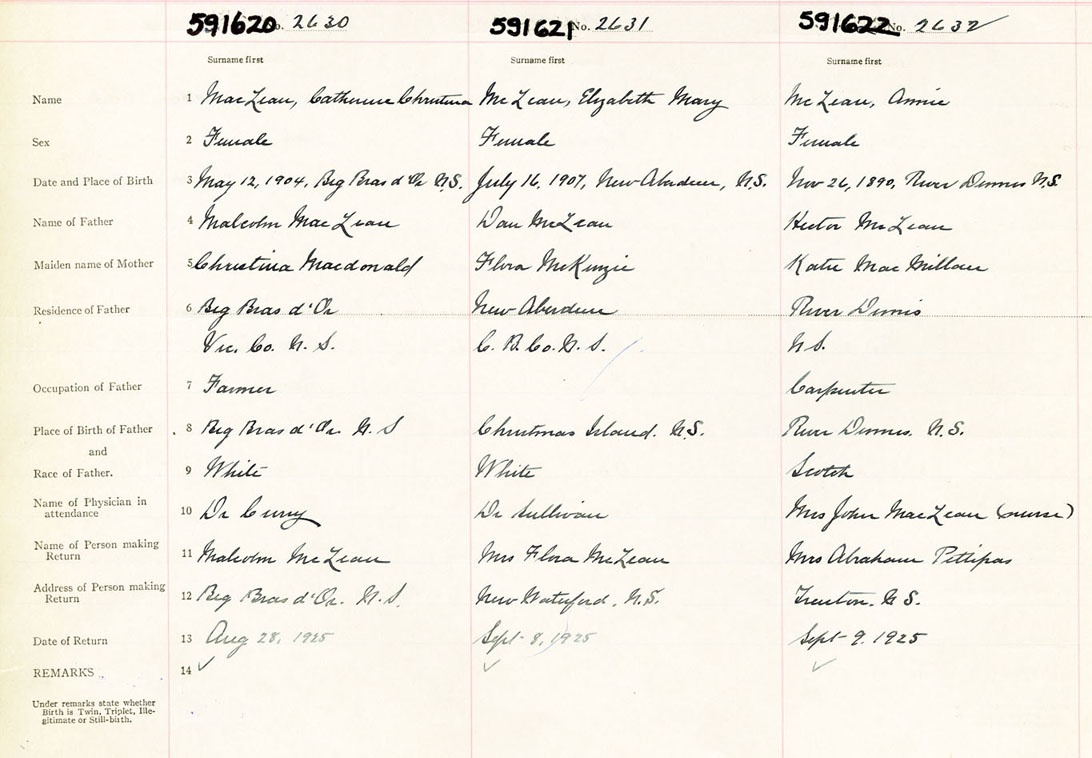 591620 No. 2630 591621 No. 2631 591622 No. 2632
Surname first Surname first Surname first
Name 1 MacLean, Catherine Christina McLean, Elizabeth Mary McLean, Annie
Sex 2 Female Female Female
Date and Place of Birth 3 May 12, 1904, Big Bras d'Or N.S. July 16, 1907, New Aberdeen, N.S. Nov 26, 1890, River Dennis N.S.
Name of Father 4 Malcolm MacLean Dan McLean Hector McLean
Maiden name of Mother 5 Christina Macdonald Flora McKenzie Katie MacMillan
Residence of Father 6 Big Bras d'Or New Aberdeen River Dennis
Vic. Co. N. S. C. B. Co. N. S. N S.
Occupation of Father 7 Farmer Carpenter
Place of Birth of Father 8 Big Bras d'Or N. S Christmas Island. N.S. River Dennis. N.S.
and
Race of Father. 9 White White Scotch
Name of Physician in
attendance 10 Dr Curry Dr Sullivan Mrs John MacLean (nurse)
Name of Person making
Return 11 Malcolm McLean Mrs Flora McLean Mrs Abraham Pettipas
Address of Person making
Return 12 Big Bras d'Or. N. S. New Waterford, N.S. Trenton. N S.
Date of Return 13 Aug 28, 1925 Sept 8, 1925 Sept 9. 1925
REMARKS 14
Under remarks state whether
Birth is Twin, Triplet, Ille-
gitimate or Still-birth.